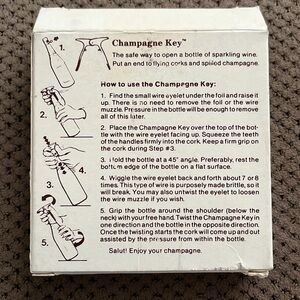 1.
Champagne Key™
The safe way to open a bottle of sparkling wine.
Put an end to flying corks and spilled champagne.
How to use the Champagne Key:
1. Find the small wire eyelet under the foil and raise it
up. There is no need to remove the foil or the wire
muzzle. Pressure in the bottle will be enough to remove
all of this later.
2.
2. Place the Champagne Key over the top of the bot-
tle with the wire eyelet facing up. Squeeze the teeth
of the handles firmly into the cork. Keep a firm grip on
the cork during Step #3.
3.
3. Hold the bottle at a 45° angle. Preferably, rest the
bottom edge of the bottle on a flat surface.
4.
4. Wiggle the wire eyelet back and forth about 7 or 8
times. This type of wire is purposely made brittle, so it
will break. You may also untwist the eyelet to loosen
the wire muzzle if you wish.
5.
5. Grip the bottle around the shoulder (below the
neck) with your free hand. Twist the Champagne Key in
one direction and the bottle in the opposite direction.
Once the twisting starts the cork will come up and out
assisted by the pressure from within the bottle.
Salut! Enjoy your champagne.